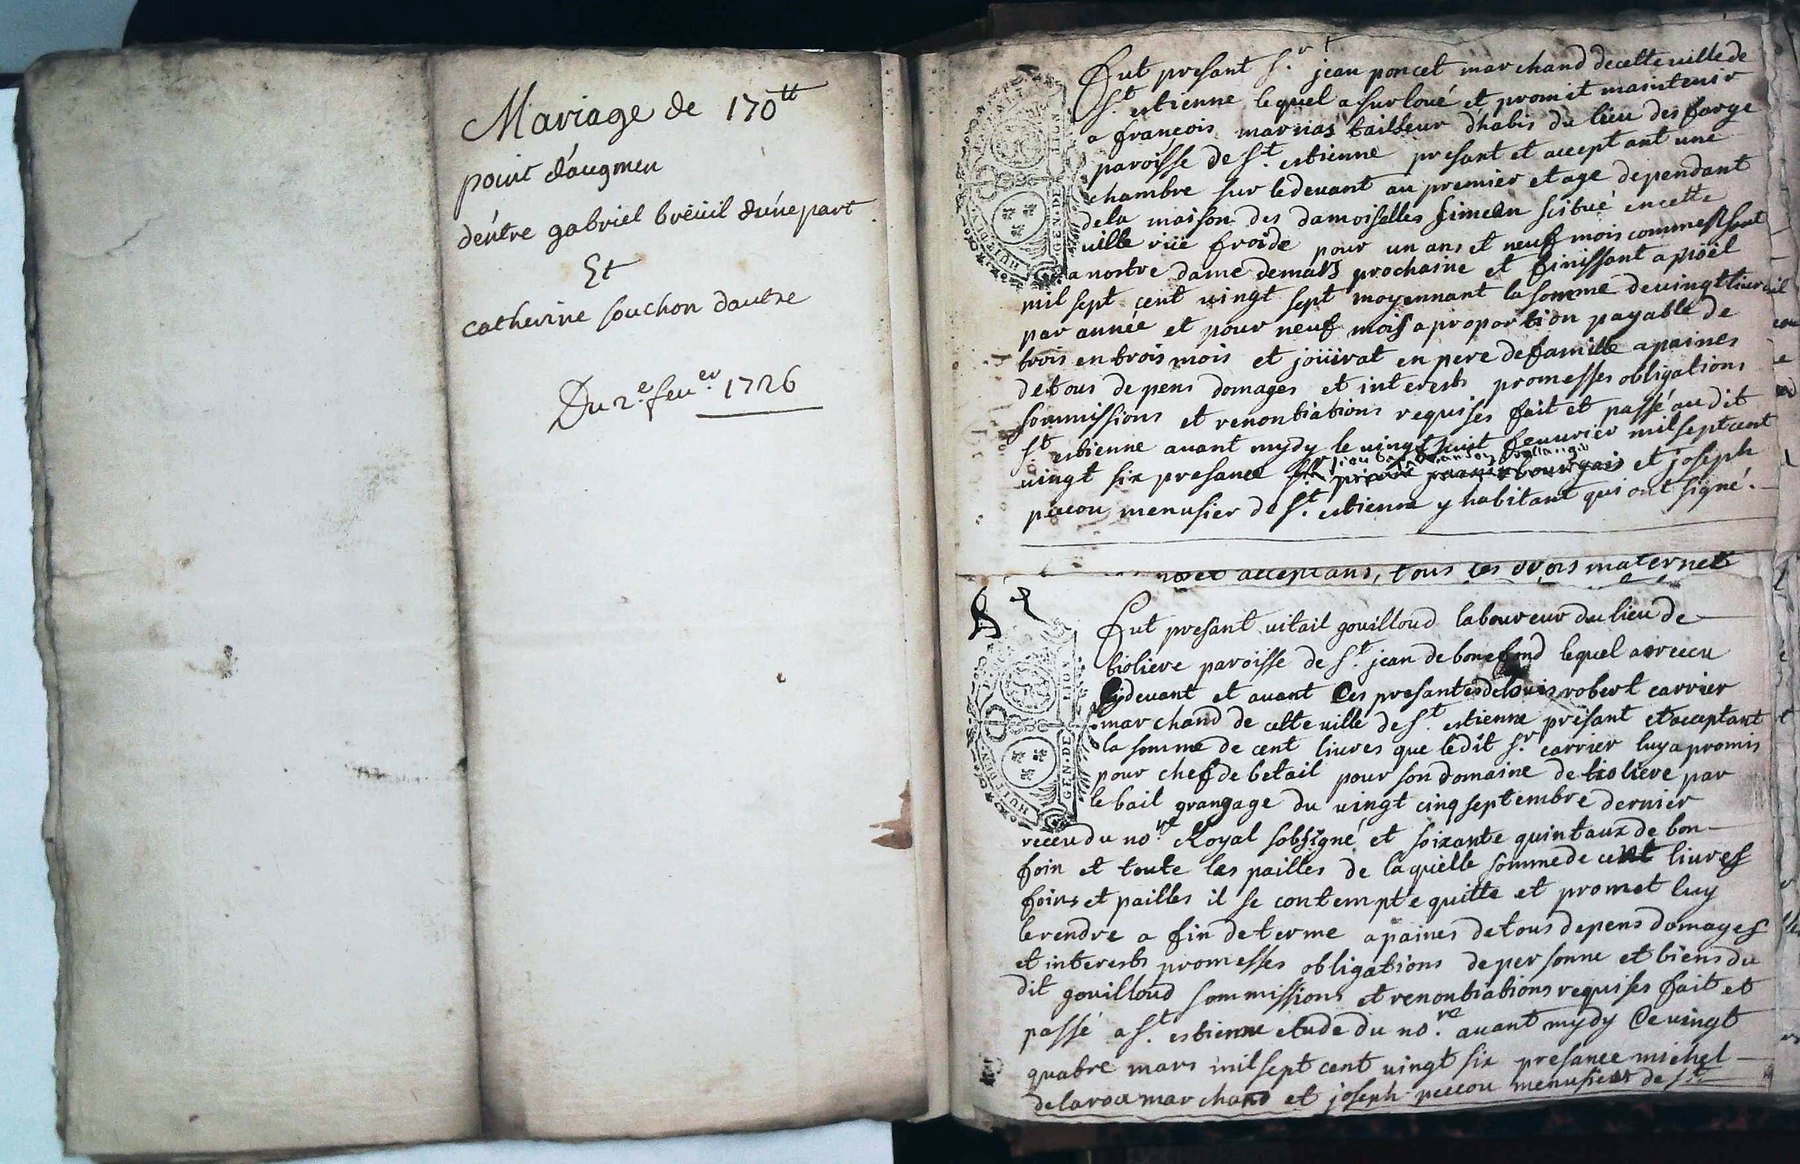 Mariage de 170 tt
point d'augmen
dentre gabriel breüil d'une part
Et
catherine souchon dautre
Du 2e feu.er 1726
Fut presant S.r jean poncet marchand de cette ville de
S.t estienne lequel a surloué et promet maintenir
a françois marnas tailleur dhabis du lieu des forge
paroisse de S.t estienne presant et acceptant une
chambre sur le devant au premier etage dependant
de la maison des damoiselles simeon scitué en cette
ville rüe froide pour un ans et neuf mois
a nostre dame de mars prochaine et finissant a nöel
mil sept cent vingt sept moyennant la somme de vingt
par année et pour neuf mois a proportion payable de
trois en trois mois et joüirat en pere de famille a paines
de tous depens domages et interests promesses obligations
sommissions et renontiations requises fait et passé au dit
S.t estienne avant mydy le vingt huit fevurier mil sept cent
vingt six presance bourgais et joseph
peicou menusier de S.t estienne y habitant qui ont signé.
acceptans, tous les drois maternel
Fut presant vitail gouilloud laboureur du lieu de
tioliere paroisse de S.t jean de bonefond lequel a receu
cydevant et avant Ces presantes de Louis robert carrier
marchand de cette ville de S.t estienne présant et aceptant
la somme de cent livres que ledit S.r carrier luy a promis
pour chef de betail pour son domaine de tioliere par
le bail grangage du vingt cinq septembre dernier
receu du no.re Royal sobsigné et soixante quintaux de bon
foin et toute les pailles de laquelle somme de cent livres
foins et pailles il se contempte quitte et promet luy
le rendre a fin de terme a paines de tous depens domages
et interests promesses obligations de personne et biens du
dit gouilloud sommissions et renontiations requises fait et
passé a S.t estienne etude du no.re avant mydy Ce vingt
quatre mars mil sept cent vingt six presance michel
delaroa marchand et joseph peicou menusiers de S.t
HUIT DEN.
GEN. DE LION
HUIT DEN.
GEN. DE LION